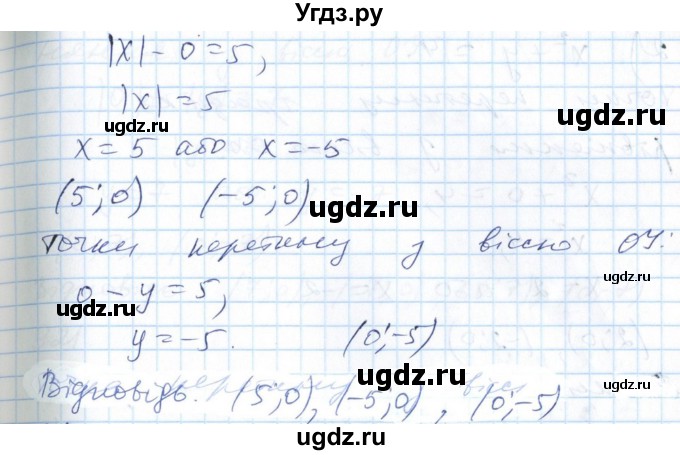 Угдз.ру
|x| - 0 = 5,
|x| = 5
ugdz.ru
ugdz.ru
x = 5 або x = -5
(5; 0) (-5; 0)
ugdz.ru
ugdz.ru
Точки перетину з віссю OY:
0 - y = 5,
y = -5. (0; -5)
ugdz.ru
ugdz.ru
ugdz.ru
Відповідь. (5; 0), (-5; 0), (0; -5)
ugdz.ru
ugdz.ru